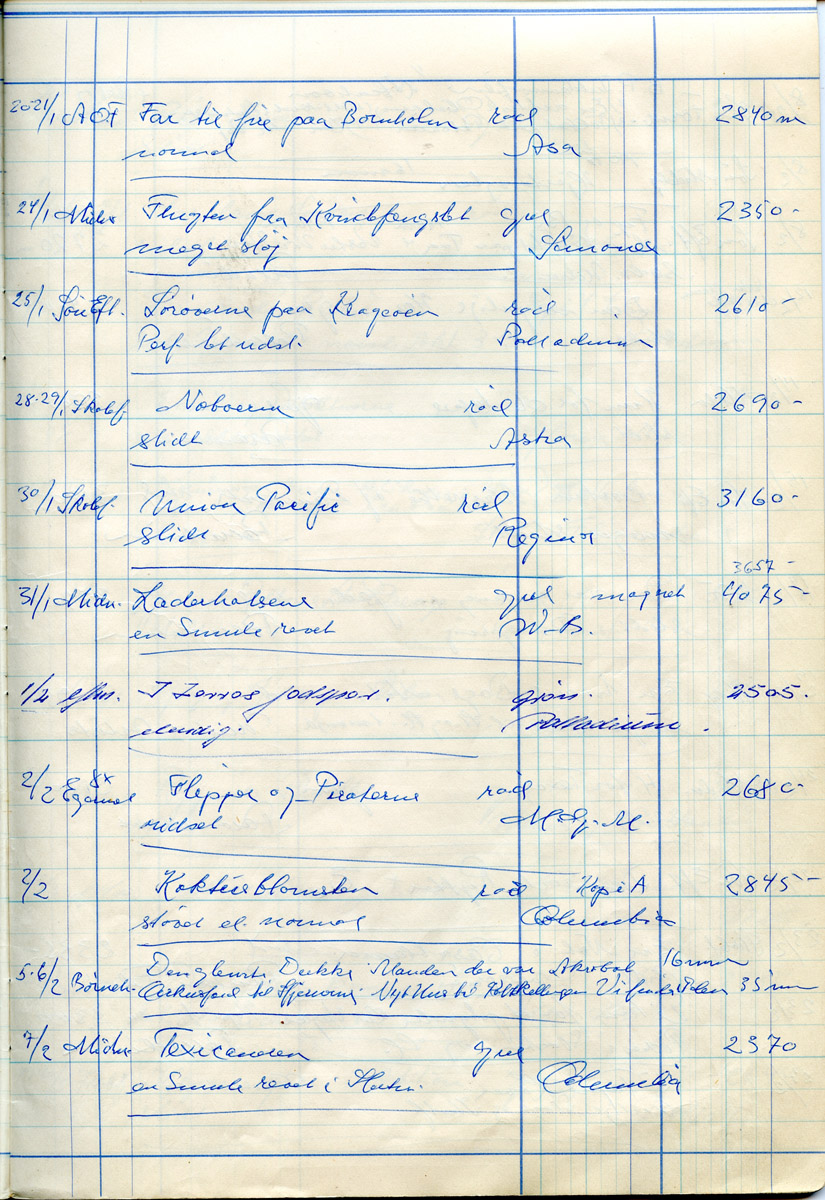 20-21/1 AOF Far til fire paa Bornholm rød 2840 m
normal Asa
24/1 Midn. Flugten fra Kvindefængslet gul 2350-
meget støj Simonea
25/1 Søn Eft. Sørøverne paa Krageøen rød 2610-
Perf. let udst. Palladium
28-29/1 Skolef. Naboerne rød 2690-
slidt Astra
30/1 Skolef. Union Pacific rød 3160-
slidt Regina
3657-
31/1 Midn. Læderhalsene gul magnet 4075-
en Smule revet W-B.
1/2 eftm. I Zorros fodspor. grøn. 2505.
elendig. Palladium.
8x
2/2 Egamol Flipper og Piraterne rød 2680-
ridset M.G.M.
2/2 Kaktusblomsten rød Kopi A 2845-
støvet el. normal Columbia
5-6/2 Børneh. Den glemte Dukke Manden der var Akrobat 16 mm
til Nyt Hus til 35 mm
7/2 Midn. Texicaneren gul 2370
en Smule revet i Columbia